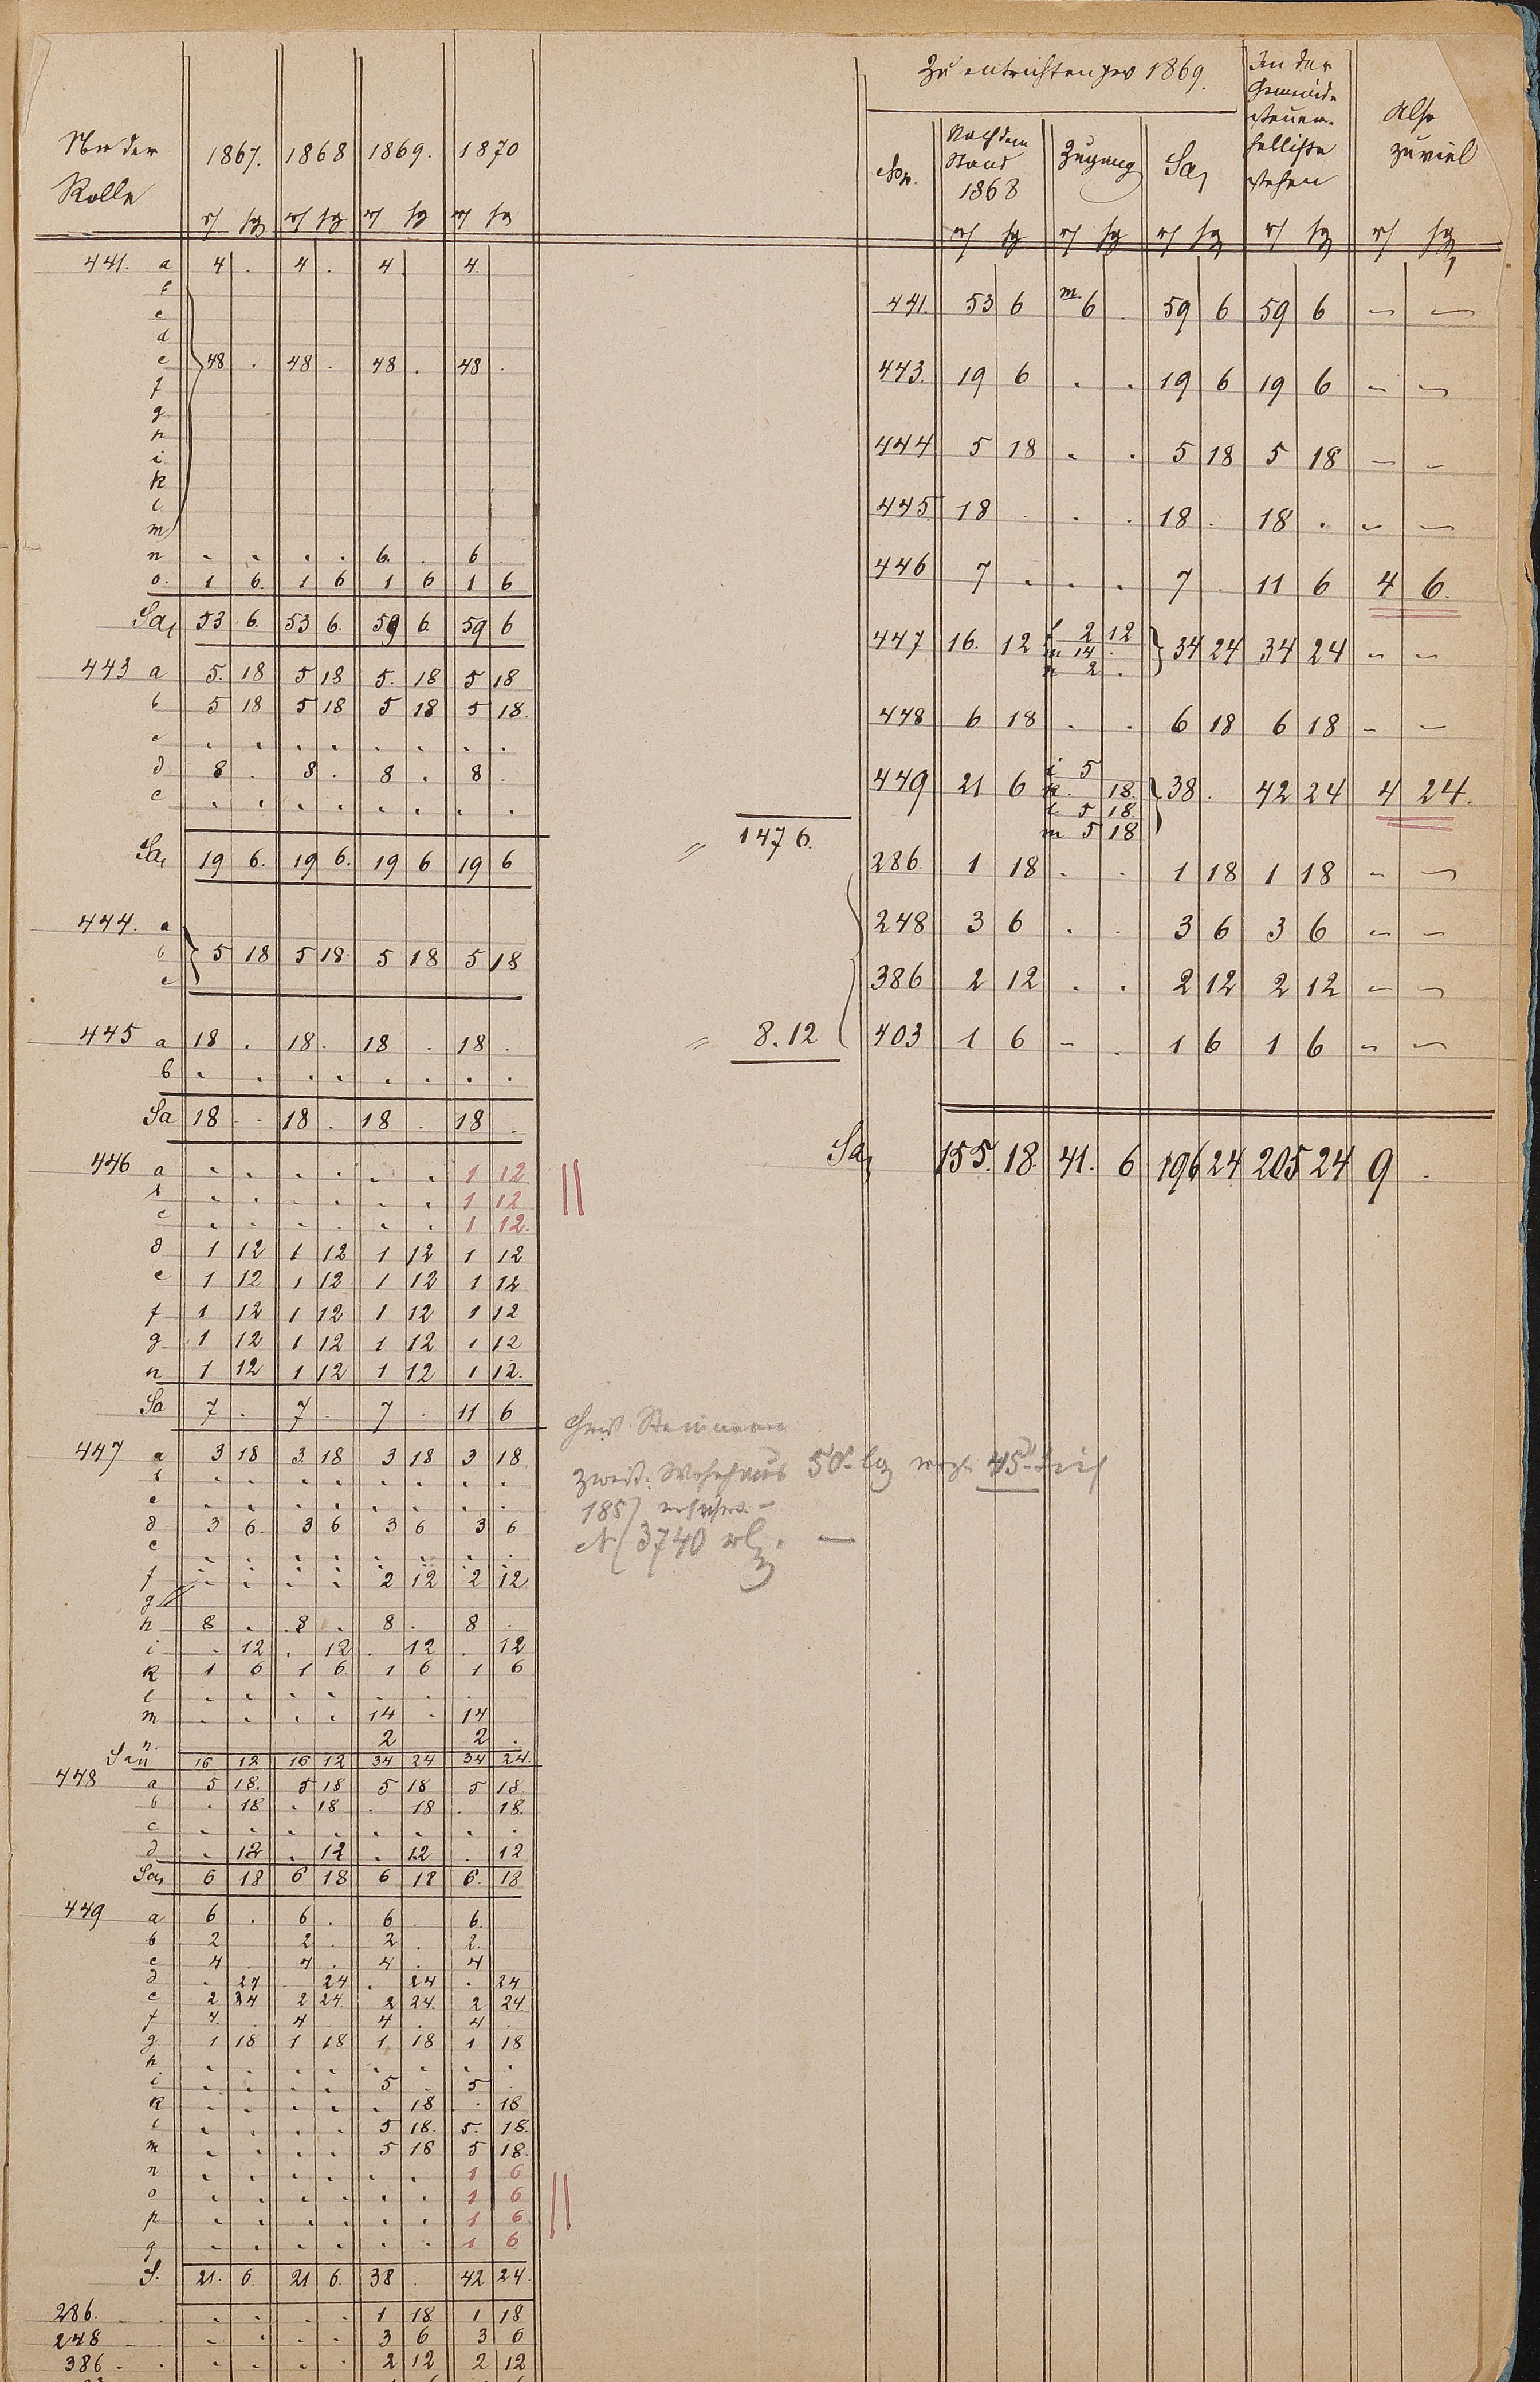 Nr der Rolle 1867. 1868 1869. 1870
rl sg rl sg rl sg rl sg
441. a 4 . 4 . 4 4.
b
c
d
e 48 . 48 . 48 . 48 .
f
g
h
i
k
l
m
n . . . . 6. . 6 .
o. 1 6. 1 6 1 6 1 6
Sa 53 6. 53 6. 59 6. 59 6
443 a 5. 18 5 18 5. 18 5 18
b 5 18 5 18 5 18 5 18.
c . . . . . . . .
d 8 . 8 . 8 . 8 .
e . . . . . . . .
Sa 19 6. 19 6. 19 6 19 6
444. a
b 5 18 5 18. 5 18 5 18
c
445 a 18 . 18 . 18 . 18 .
b . . . . . . . .
Sa 18 . 18 . 18 . 18 .
446 a . . . . . . 1 12
b . . . . . . 1 12
c . . . . . . 1 12.
d 1 12 1 12 1 12 1 12
e 1 12 1 12 1 12 1 12
f 1 12 1 12 1 12 1 12
g 1 12 1 12 1 12 1 12
n 1 12 1 12 1 12 1 12.
Sa 7 . 7 . 7 . 11 6
447 a 3 18 3 18 3 18 3 18
b . . . . . . . .
c . . . . . . . .
d 3 6. 3 6 3 6 3 6
e . . . . . . . .
f . . . . 2 12 2 12
g
h 8 . 8 . 8 . 8 .
i . 12 . 12 . 12 . 12
k 1 6 1 6 1 6 1 6
l . . . . . . .
m . . . . 14 . 14
n. 2 2 .
Sa 16 12 16 12 34 24 34 24.
448 a 5 18. 5 18 5 18 5 18
b . 18 . 18 . 18 . 18.
c . . . . . . . .
d . 12 . 12 . 12 . 12
Sa 6 18 6 18 6 18 6. 18
449 a 6 . 6 . 6 6.
b 2 2 . 2 . 2.
c 4 . 4 . 4 . 4
d . 24 . 24 . 24 . 24
e 2 24 2 24 2 24. 2 24
f 4. . 4 4 . 4 .
g 1 18 1 18 1 18 1 18
h . . . . . . . .
i . . . . 5 . 5 .
k . . . . . 18 . 18
l . . . . 5 18. 5. 18
m . . . . 5 18 5 18.
n . . . . . . 1 6
o . . . . . . 1 6
p . . . . . . 1 6
q . . . . . . 1 6
S. 21. 6. 21 6. 38 . 42 24.
286. . . . . 1 18 1 18
248 . . . . 3 6 3 6
386 . . . . 2 12 2 12
Zu entrichten pro 1869.
In der Gemeinde steuer- hellista stehen
Also zuviel
No. Nach dem Stand 1868 Zugang Sa
rl sg rl sg rl sg rl sg rl sg
441. 53 6 m 6 . 59 6 59 6 – –
443. 19 6 . . 19 6 19 6 – –
444 5 18 . . 5 18 5 18 – –
445. 18 . . . 18 . 18 . – –
446 7 . . . 7 . 11 6 4 6.
447 16. 12 f 2 12
m 14 . 34 24 34 24 – –
n 2 .
448 6 18 . . 6 18 6 18 – –
449 21 6 i 5
k . 18 38 . 42 24 4 24.
l 5 18
m 5 18
147 6.
286. 1 18 . . 1 18 1 18 – –
248 3 6 . . 3 6 3 6 – –
386 2 12 . . 2 12 2 12 – –
8. 12 403 1 6 – . 1 6 1 6 – –
Sa 155. 18. 41. 6 196 24 205 24 9 .
Wohnhaus 50. lg 45.
185
3740